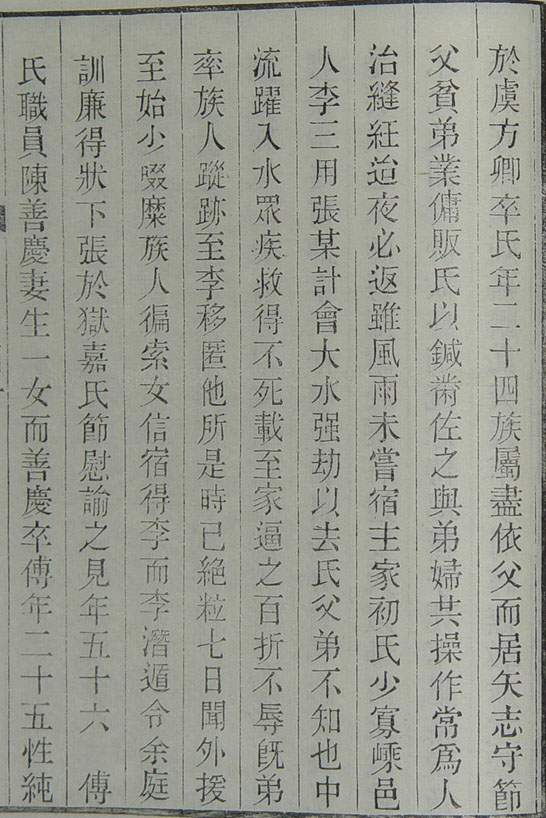 於虞方卿卒氏年二十四族屬盡依父而居矢志守節
父貧弟業傭販氏以鍼黹佐之與弟婦共操作常爲人
治縫紝迨夜必返雖風雨未嘗宿主家初氏少寡嵊邑
人李三用張某計會大水强劫以去氏父弟不知也中
流躍入水眾疾救得不死載至家逼之百折不辱旣弟
率族人蹤跡至李移匿他所是時已絶粒七日聞外援
至始少啜糜族人徧索女信宿得李而李潛遁令余庭
訓廉得狀下張於獄嘉氏節慰諭之見年五十六　傅
氏職員陳善慶妻生一女而善慶卒傅年二十五性純